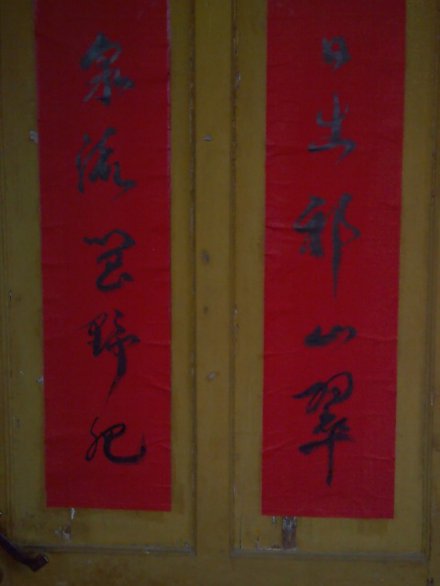 日出山翠
泉流野肥